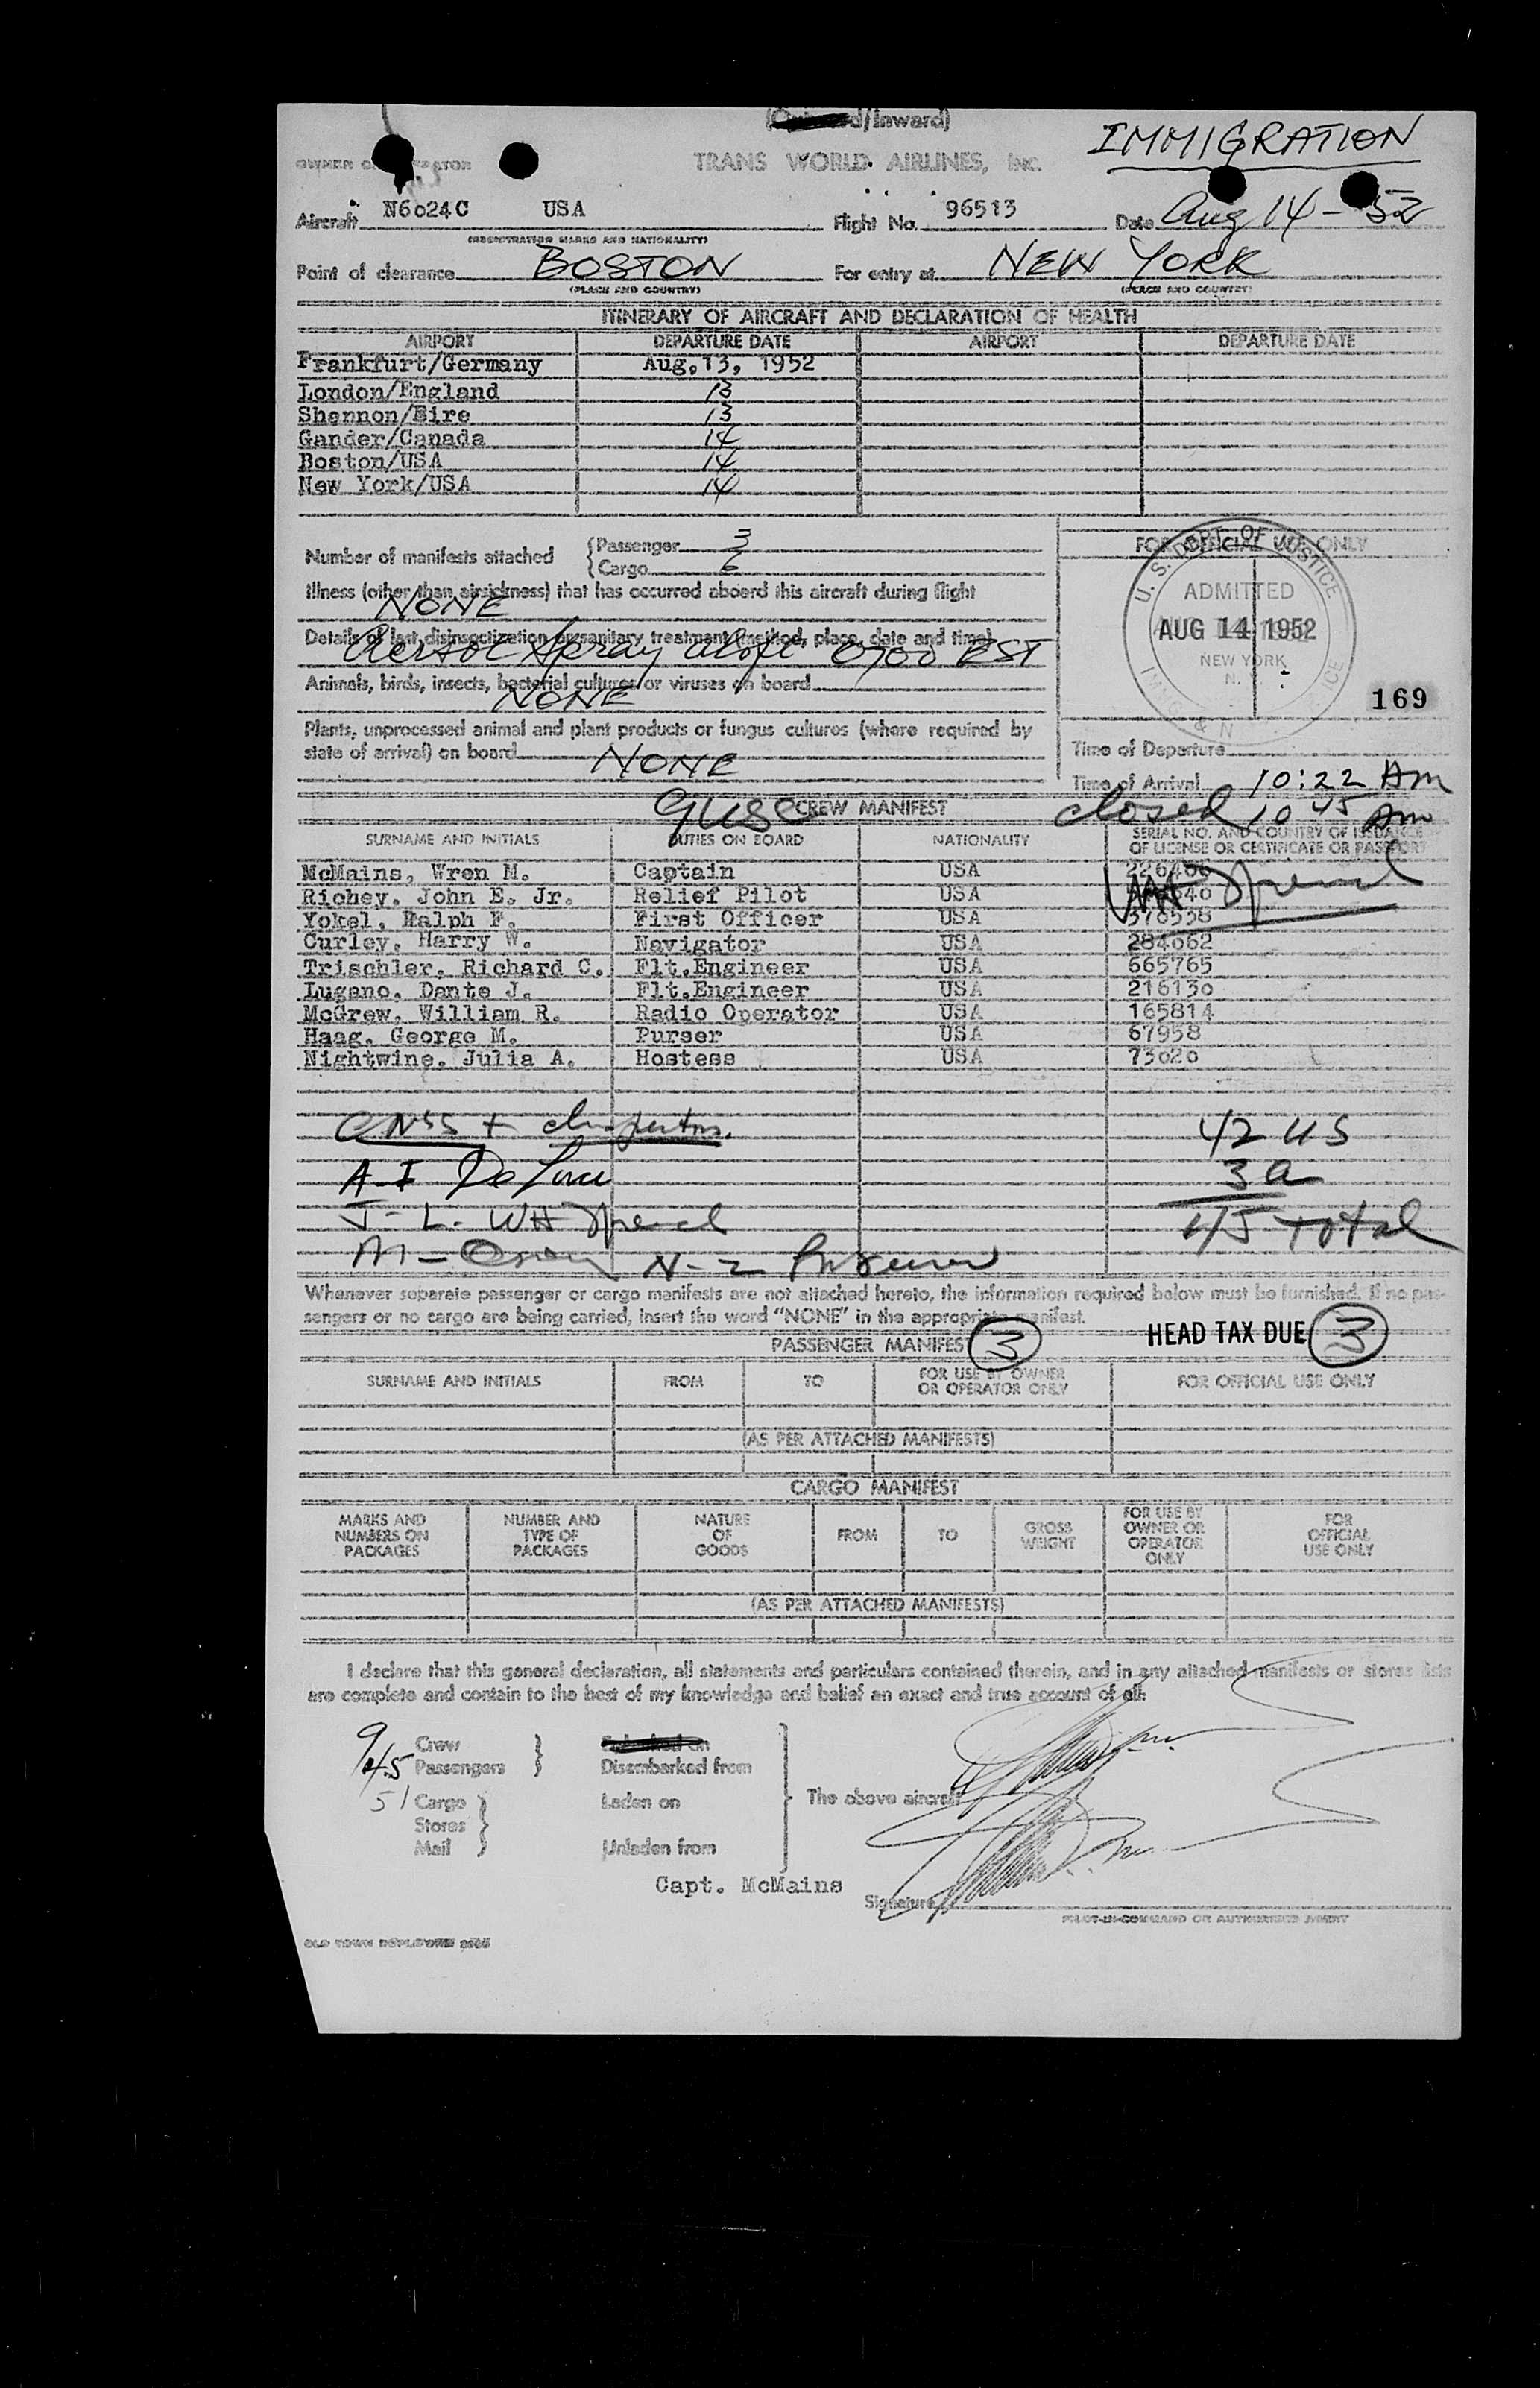 (d/Inward)
IMMIGRATION
OWNER O ERATOR TRANS WORLD AIRLINES, Inc.
Aircraft N6024C USA Flight No. 96513 Date Aug 14 - 52
(REGISTRATION MARKS AND NATIONALITY)
Point of clearance BOSTON For entry at NEW YORK
(PLACE AND COUNTRY) (PLACE AND COUNTRY)
ITINERARY OF AIRCRAFT AND DECLARATION OF HEALTH
AIRPORT DEPARTURE DATE AIRPORT DEPARTURE DATE
Frankfurt/Germany Aug.13, 1952
London/England 13
Shannon/Eire 13
Gander/Canada 14
Boston/USA 14
New York/USA 14
Number of manifests attached {Passenger 3
{Cargo 6
Illness (other than airsickness) that has occurred aboard this aircraft during flight
NONE
Details of last disinsectization or sanitary treatment (method, place, date and time)
Aersol Spray aloft 0700 EST
Animals, birds, insects, bacterial cultures or viruses on board
NONE
Plants, unprocessed animal and plant products or fungus cultures (where required by
state of arrival) on board NONE
FOR OFFICIAL USE ONLY
U. S. DEPT. OF JUSTICE
ADMITTED
AUG 14 1952
NEW YORK
N.
IMMG. & N ICE
169
Time of Departure
Time of Arrival 10:22 Am
closed 10 45 Am
9 USC CREW MANIFEST
SURNAME AND INITIALS DUTIES ON BOARD NATIONALITY SERIAL NO. AND COUNTRY OF ISSUANCE
OF LICENSE OR CERTIFICATE OR PASSPORT
McMains, Wren M. Captain USA
Richey, John E. Jr. Relief Pilot USA
Yokel, Ralph F. First Officer USA 378538
Curley, Harry W. Navigator USA 284062
Trischler, Richard C. Flt.Engineer USA 665765
Lugano, Dante J. Flt.Engineer USA 216130
McGrew, William R. Radio Operator USA 165814
Haag, George M. Purser USA 67958
Nightwine, Julia A. Hostess USA 73020
42 US
A-I De Luca
3 a
J- L- WH
45 total
M - N-2
Whenever separate passenger or cargo manifests are not attached hereto, the information required below must be furnished. If no pas-
sengers or no cargo are being carried, insert the word "NONE" in the appropriate manifest.
PASSENGER MANIFEST 3 HEAD TAX DUE 3
SURNAME AND INITIALS FROM TO FOR USE BY OWNER
OR OPERATOR ONLY FOR OFFICIAL USE ONLY
(AS PER ATTACHED MANIFESTS)
CARGO MANIFEST
MARKS AND
NUMBERS ON
PACKAGES NUMBER AND
TYPE OF
PACKAGES NATURE
OF
GOODS FROM TO GROSS
WEIGHT FOR USE BY
OWNER OR
OPERATOR
ONLY FOR
OFFICIAL
USE ONLY
(AS PER ATTACHED MANIFESTS)
I declare that this general declaration, all statements and particulars contained therein, and in any attached manifests or stores lists
are complete and contain to the best of my knowledge and belief an exact and true account of all:
9 Crew
45 Passengers } Disembarked from
51 Cargo Laden on The above aircraft
Stores
Mail Unladen from
Capt. McMains
Signature
PILOT-IN-COMMAND OR AUTHORIZED AGENT
OLD TOWN